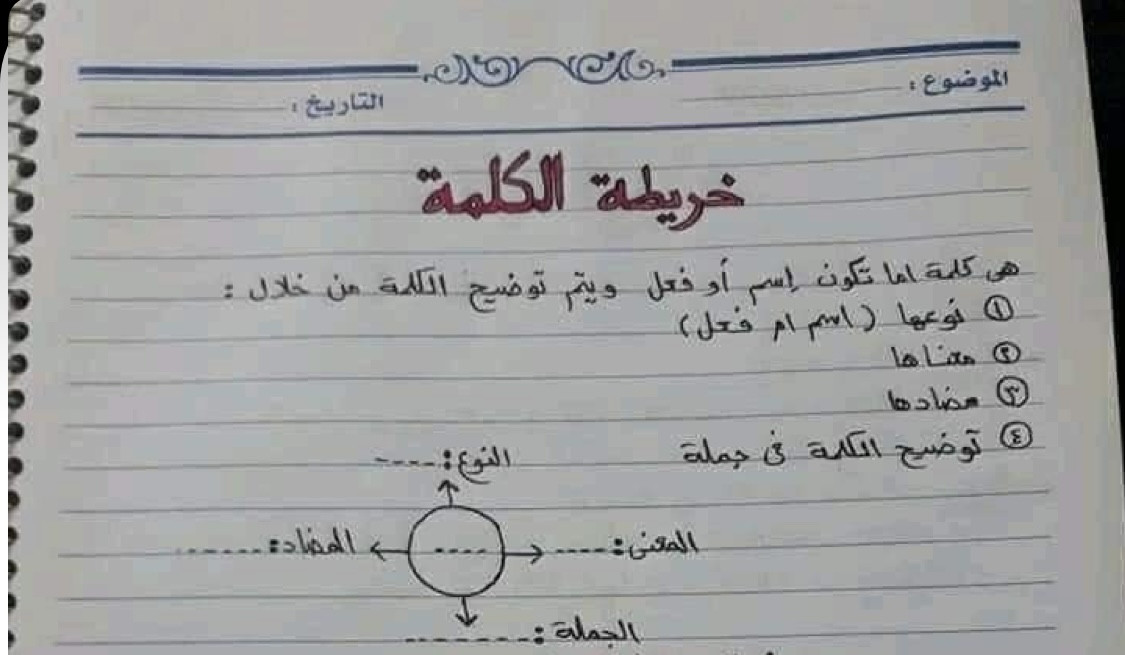 الموضوع :
التاريخ :
خريطة الكلمة
هى كلمة اما تكون إسم أو فعل ويتم توضيح الكلمة من خلال :
① نوعها (اسم ام فعل)
② معناها
③ مضادها
④ توضيح الكلمة فى جملة
النوع : ----
المعنى : ----
----
المضاد : ------
الجملة : -------